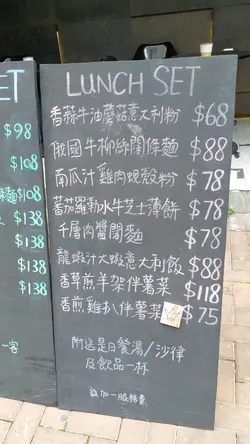 ET
$98
$108
$108
$138
$138
$138
$138
一客
LUNCH SET
香蒜牛油蘑菇意大利粉 $68
俄國牛柳絲闊條麵 $88
南瓜汁雞肉蜆殼粉 $78
蕃茄羅勒水牛芝士薄餅 $78
千層肉醬闊麵 $78
龍蝦汁大蝦意大利飯 $88
香草煎羊架伴薯菜 $118
香煎雞扒伴薯菜 $75
附送是日餐湯/沙律
及飲品一杯
設加一服務費